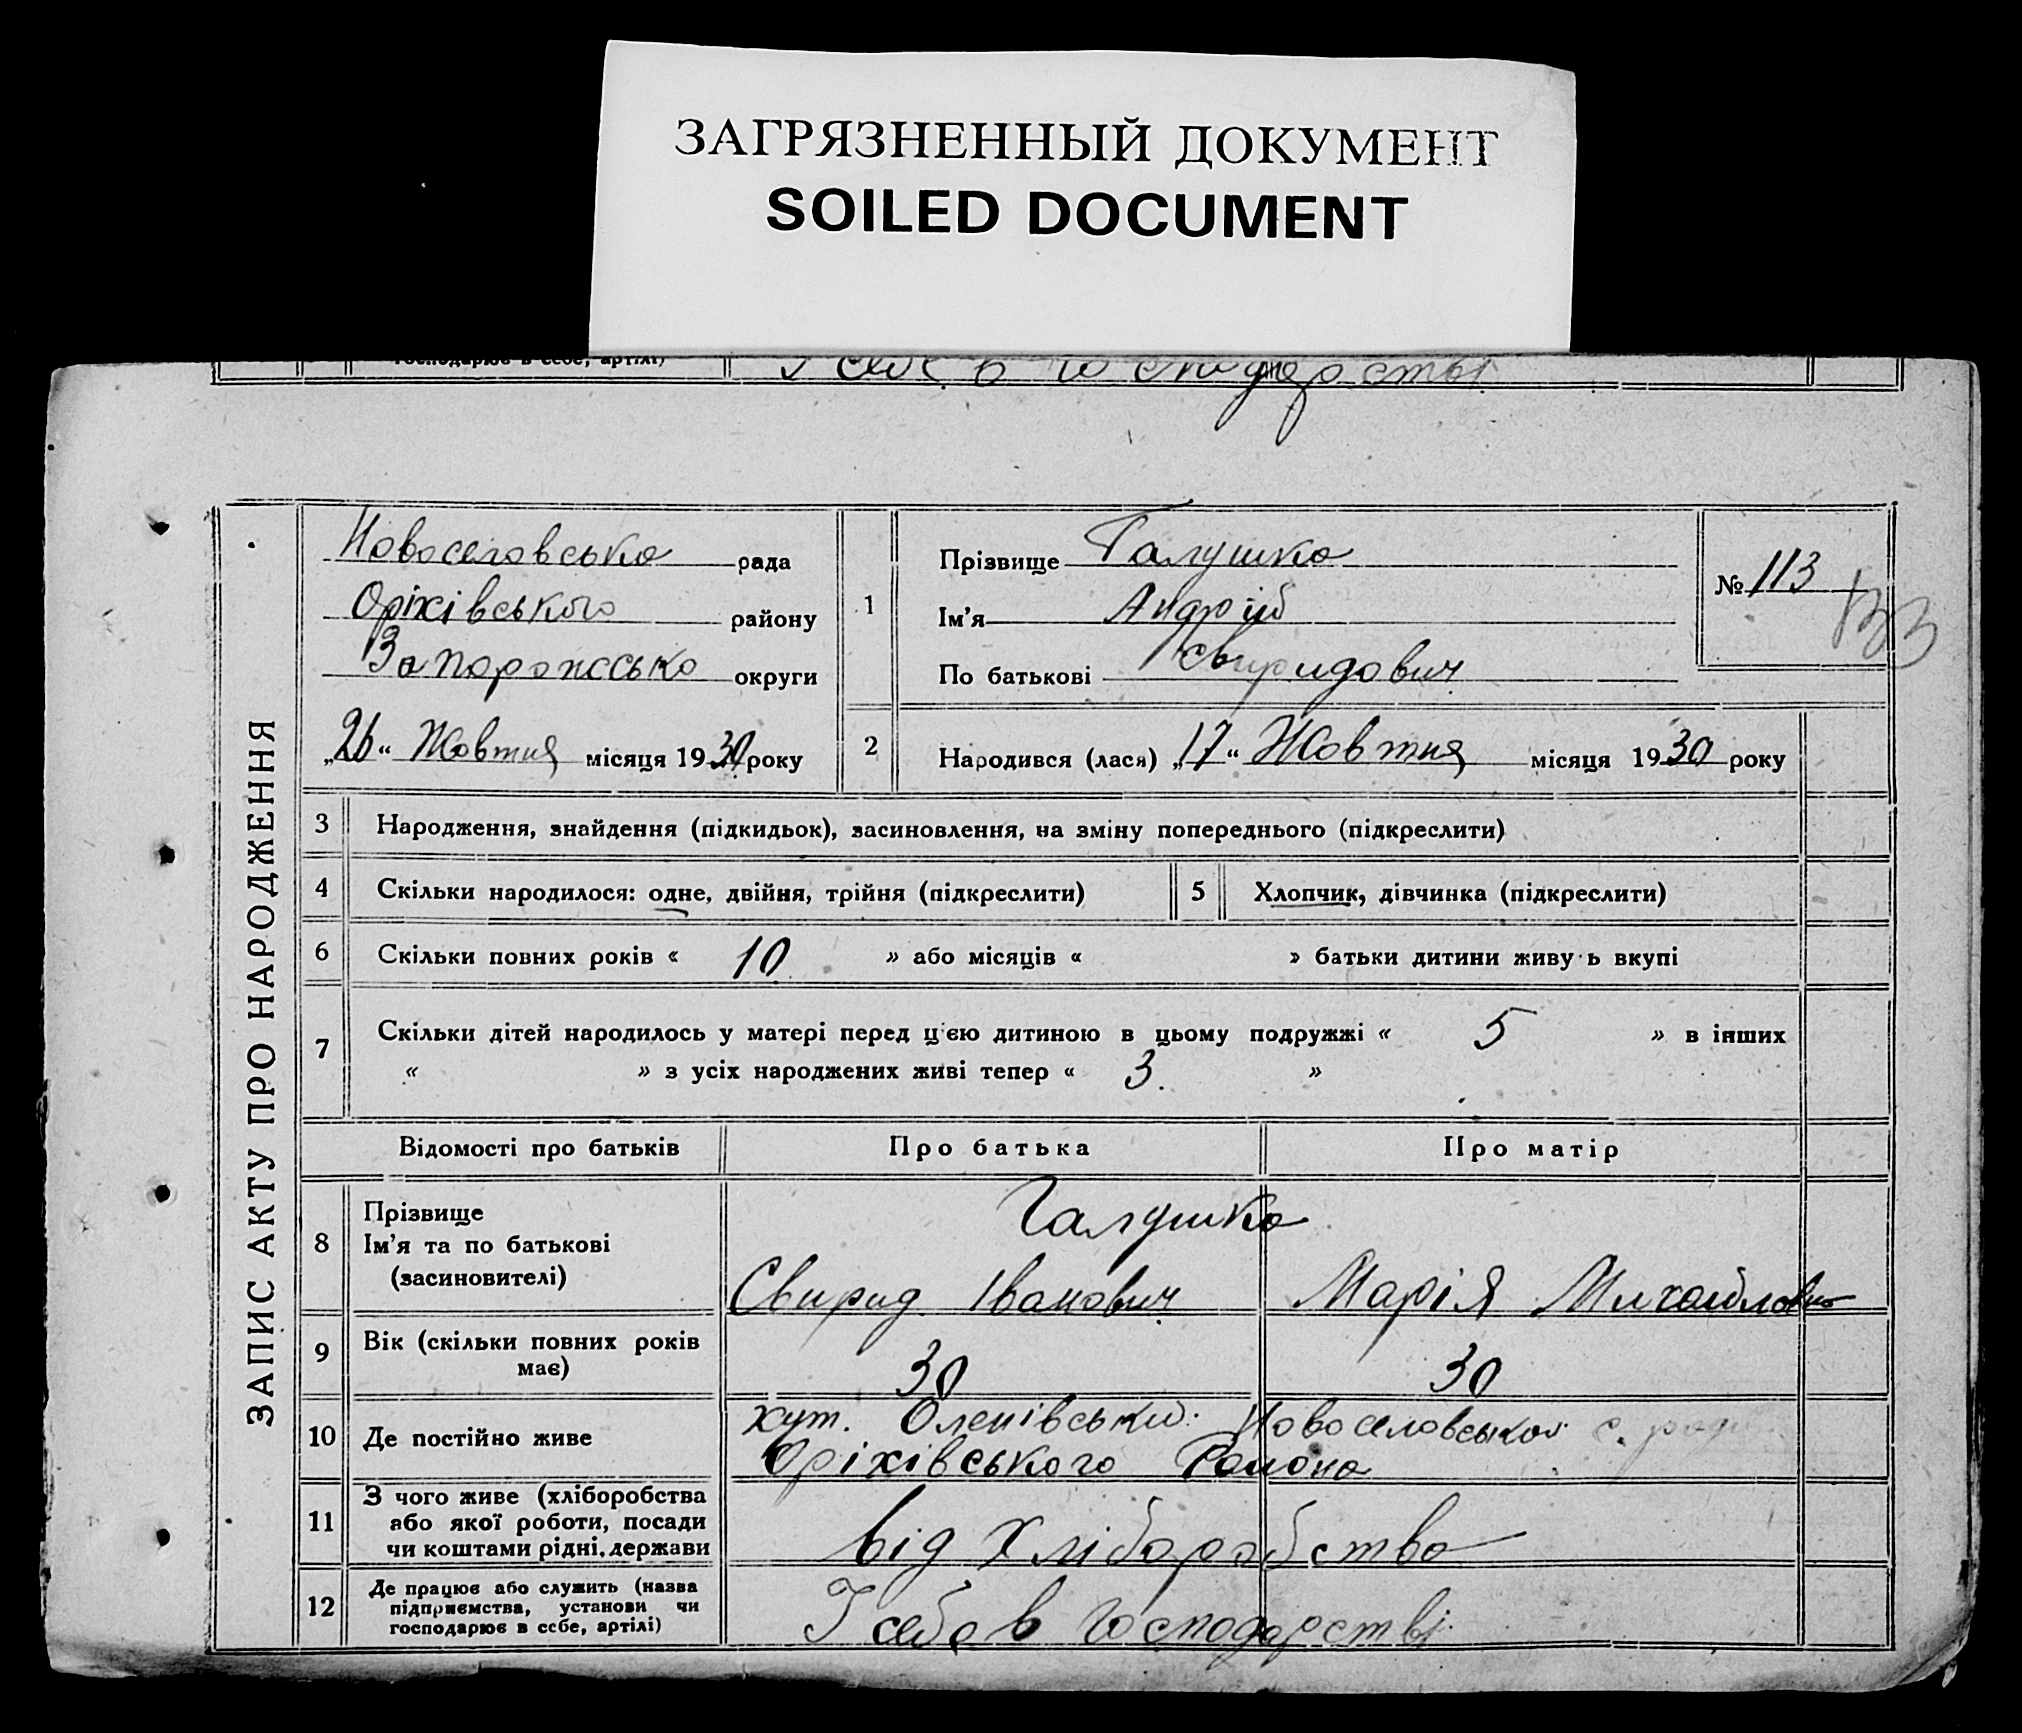 ЗАГРЯЗНЕННЫЙ ДОКУМЕНТ
SOILED DOCUMENT
господарює в себе, артілі)
У себе в господарстві
ЗАПИС АКТУ ПРО НАРОДЖЕННЯ
Новоселовсько рада
Оріхівського району
Запорожсько округи
„26“ Жовтня місяця 1930 року
1
Прізвище Галушко
Ім'я Андрій
По батькові Свиридович
№ 113
133
2
Народився (лася) „17“ Жовтня місяця 1930 року
3 Народження, знайдення (підкидьок), засиновлення, на зміну попереднього (підкреслити)
4 Скільки народилося: одне, двійня, трійня (підкреслити)
5 Хлопчик, дівчинка (підкреслити)
6 Скільки повних років « 10 » або місяців « » батьки дитини живуть вкупі
7 Скільки дітей народилось у матері перед цією дитиною в цьому подружжі « 5 » в інших
« » з усіх народжених живі тепер « 3. »
Відомості про батьків Про батька Про матір
8 Прізвище
Ім'я та по батькові
(засиновителі)
Галушко
Свирид Іванович Марія Михайловно
9 Вік (скільки повних років
має)
30 30
10 Де постійно живе
хут. Оленівський Новоселовської с. ради
Оріхівського Району
11 З чого живе (хліборобства
або якої роботи, посади
чи коштами рідні, держави
від хліборобство
12 Де працює або служить (назва
підприємства, установи чи
господарює в себе, артілі)
У себе в господарстві